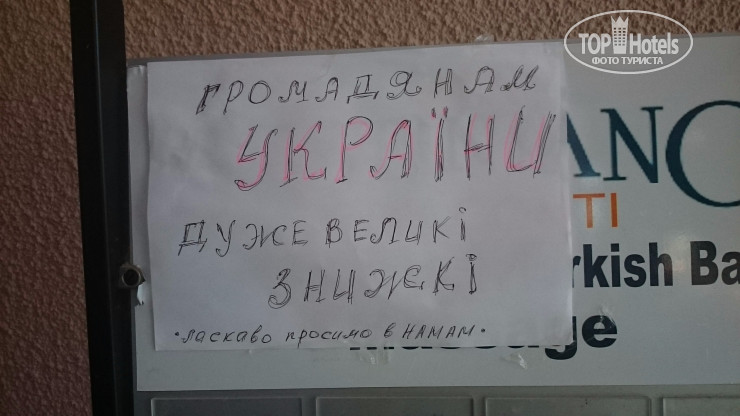 TOP Hotels
ФОТО ТУРИСТА
ГРОМАДЯНАМ
УКРАЇНИ
ANO
TI
ДУЖЕ ВЕЛИКІ
rkish Ba
ЗНИЖКІ
ge
•ласкаво просимо в НАМАМ•